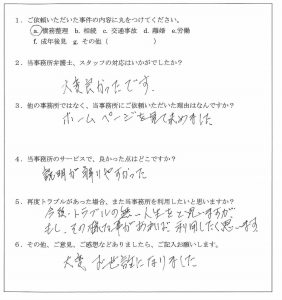 1. ご依頼いただいた事件の内容に丸をつけてください。
a. 債務整理 b. 相続 c. 交通事故 d. 離婚 e.労働
f. 成年後見 g. その他 ( )
2. 当事務所弁護士、スタッフの対応はいかがでしたか?
大変良かったです.
3. 他の事務所ではなく、当事務所にご依頼いただいた理由はなんですか?
ホームページを見て決めました
4. 当事務所のサービスで、良かった点はどこですか?
説明が解りやすかった
5. 再度トラブルがあった場合、また当事務所を利用したいと思いますか?
今後、トラブルの無い人生をと思いますが
もし、その様な事があれば利用したく思います
6. その他、ご意見、ご感想などありましたら、ご記入お願いします。
大変お世話になりました